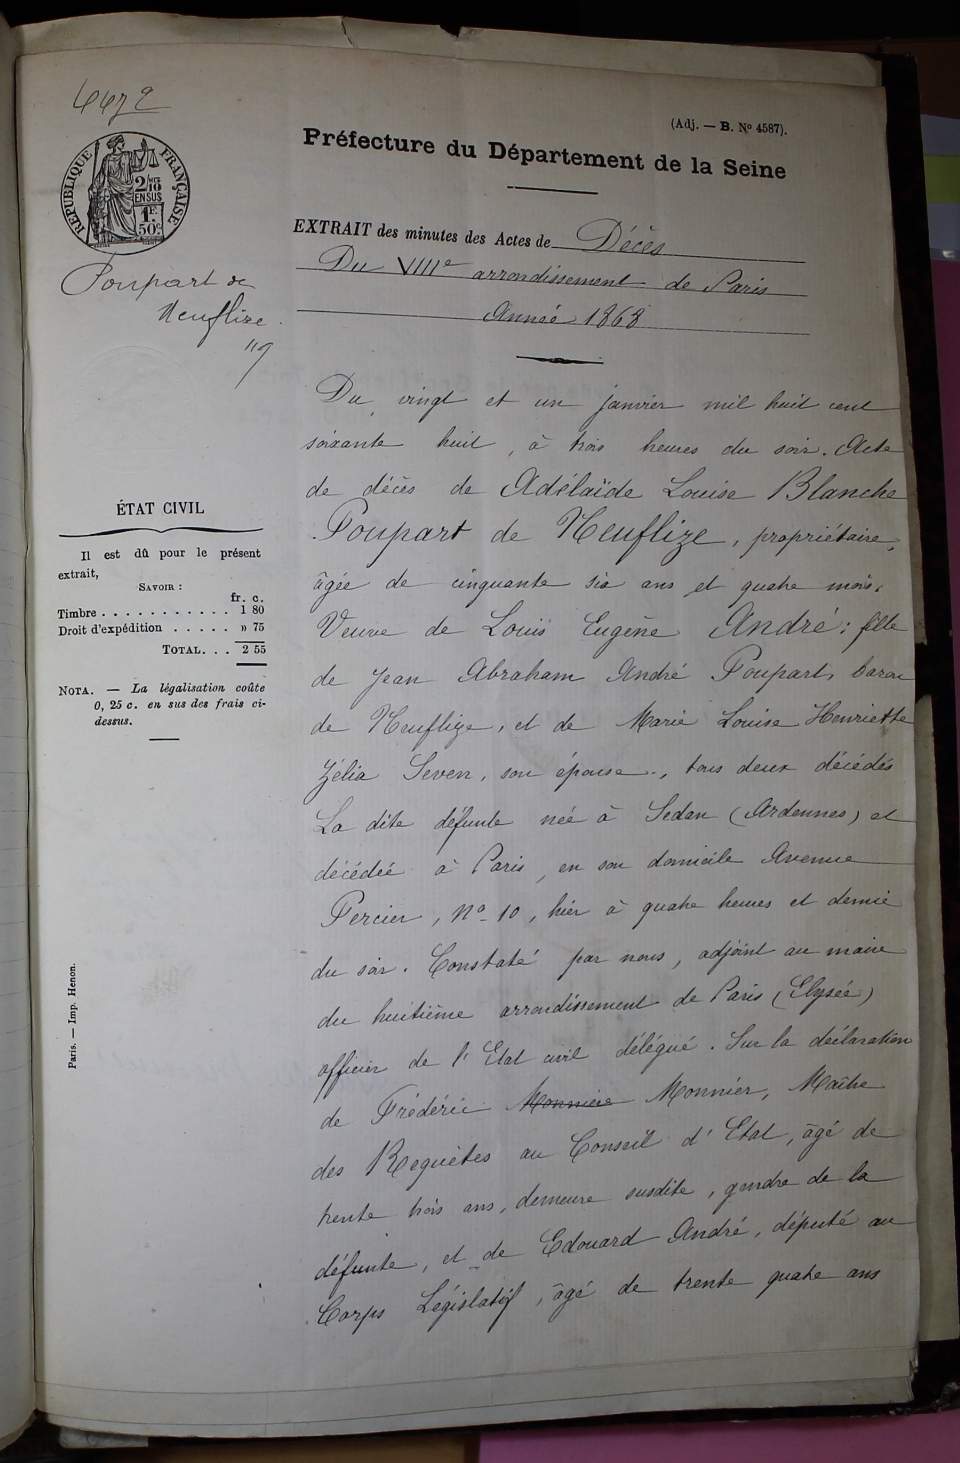 (Adj. — B. Nº 4587).
Préfecture du Département de la Seine
RÉPUBLIQUE FRANÇAISE
2/10
EN SUS
1F.
50c.
Poupart de
Neuflize.
EXTRAIT des minutes des Actes de Décès
Du VIIIe arrondissement de Paris
Année 1868
Du vingt et un janvier mil huit cent
soixante huit, à trois heures du soir. Acte
de décès de Adélaïde Louise Blanche
Poupart de Neuflize, propriétaire,
âgée de cinquante six ans et quatre mois.
Veuve de Louis Eugène André; fille
de Jean Abraham André Poupart, baron
de Neuflize, et de Marie Louise Henriette
Zélia Seven, son épouse, tous deux décédés
La dite défunte née à Sedan (Ardennes) et
décédée à Paris, en son domicile Avenue
Percier, No 10, hier à quatre heures et demie
du soir. Constaté par nous, adjoint au maire
du huitième arrondissement de Paris (Elysée)
officier de l'Etat civil délégué. Sur la déclaration
de Frédéric Monnier, Maître
des Requêtes au Conseil d'Etat, âgé de
trente trois ans, demeure susdite, gendre de la
défunte, et de Edouard André, député au
Corps Législatif, âgé de trente quatre ans
ÉTAT CIVIL
Il est dû pour le présent
extrait,
SAVOIR :
fr. c.
Timbre . . . . . . . . . . . . 1 80
Droit d'expédition . . . . . » 75
TOTAL. . . 2 55
NOTA. — La légalisation coûte
0, 25 c. en sus des frais ci-
dessus.
Paris. — Imp. Henon.